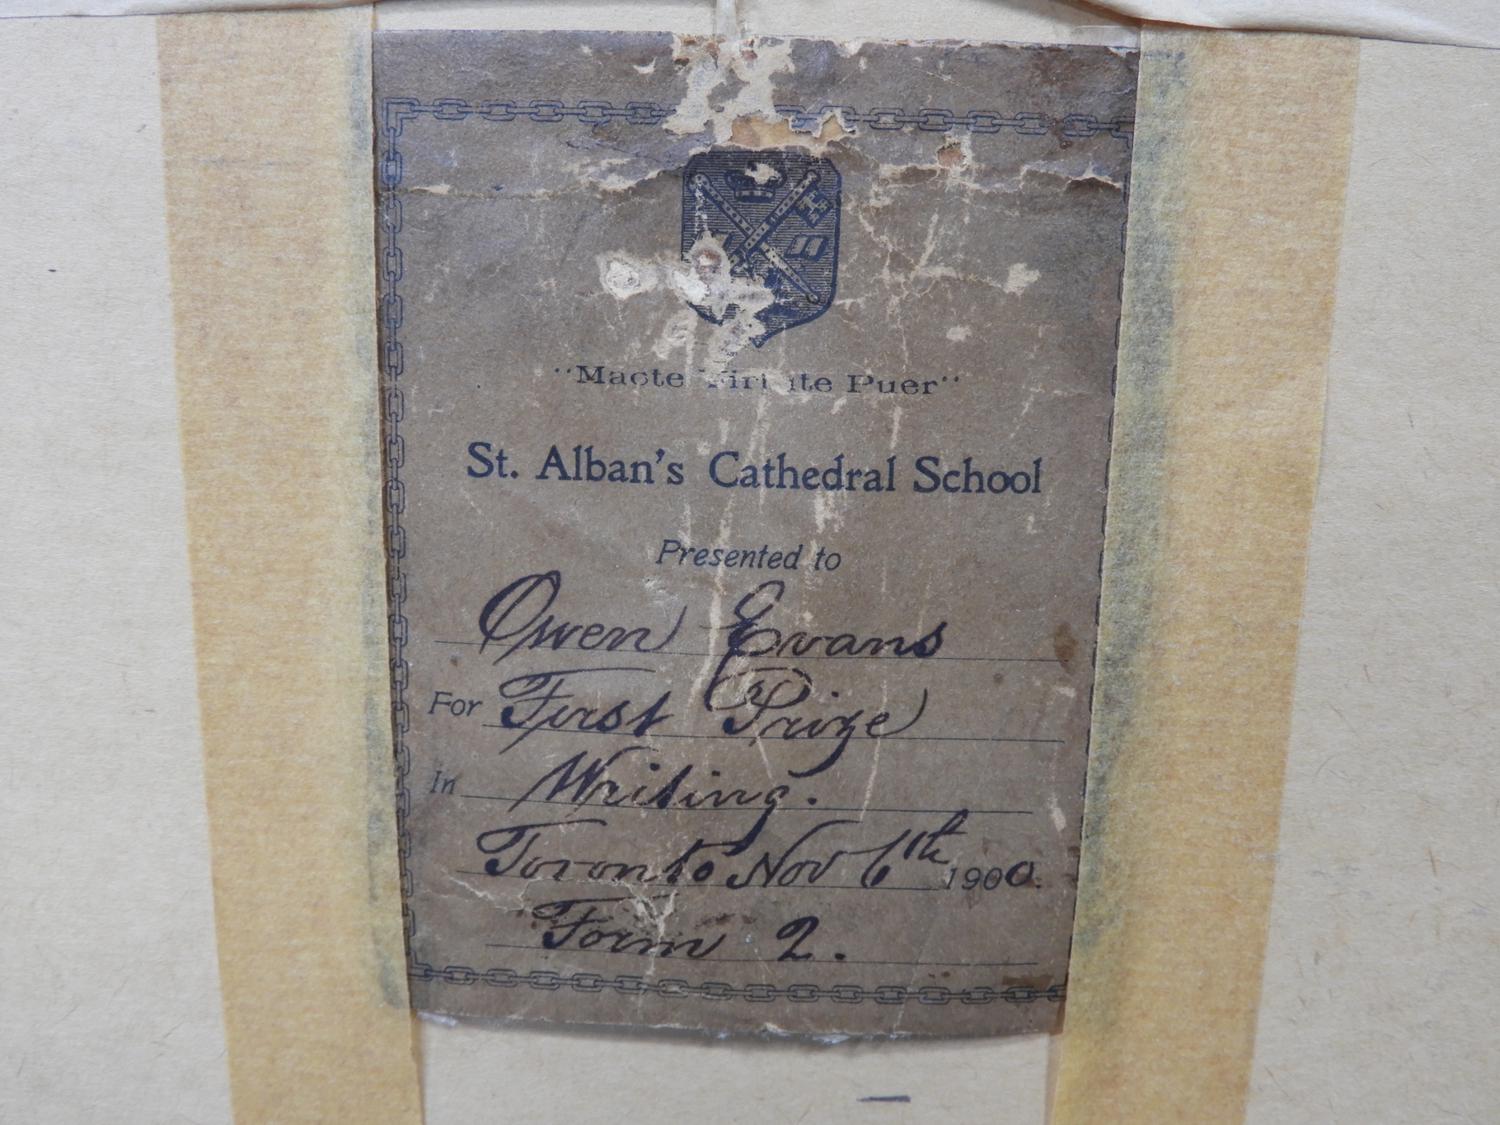 "Macte Virtute Puer"
St. Alban's Cathedral School
Presented to
Owen Evans
For First Prize
In Writing.
Toronto Nov 6th 1900.
Form 2.